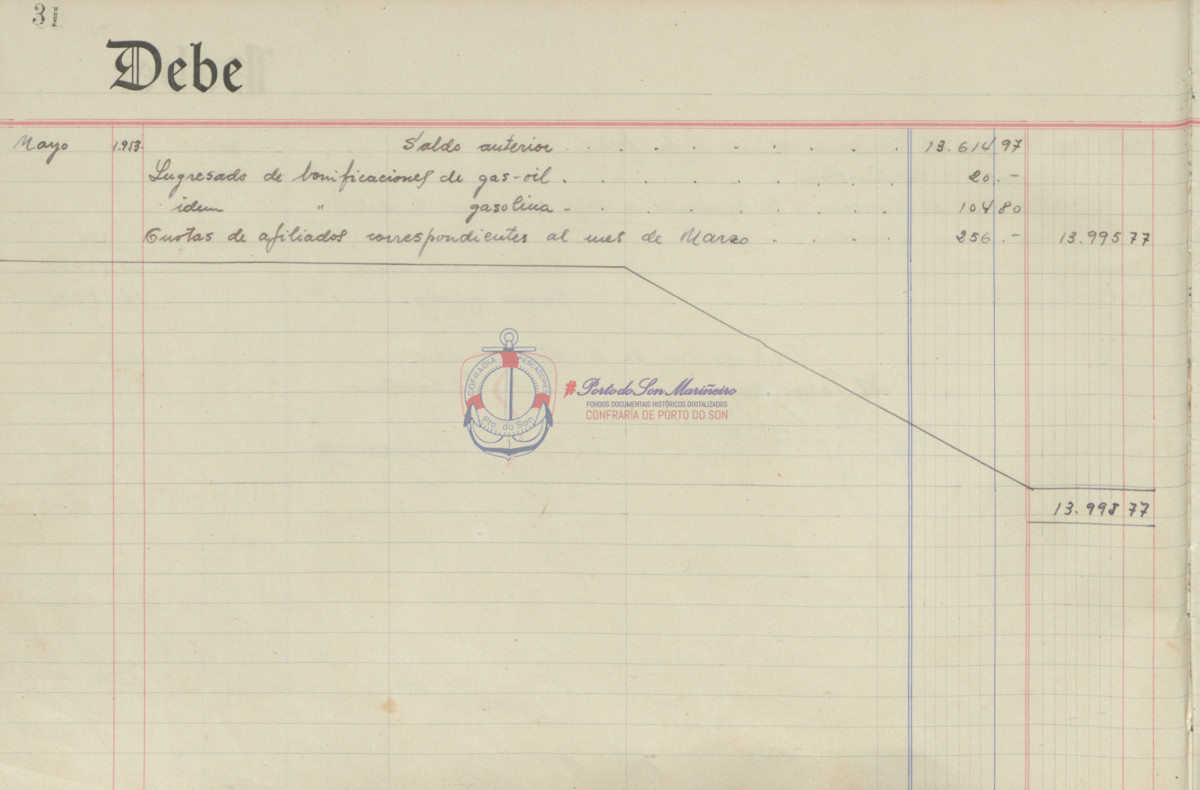 3
Debe
Mayo 1.953. Saldo anterior . . . . . . . . . 13.614 97
Ingresado de bonificaciones de gas-oil . . . . . . . . 20.-
idem " gasolina - . . . . . . . 104 80
Cuotas de afiliados correspondientes al mes de Marzo . . . . 256.- 13.995 77
COFRADIA PESCADORES
Pto. do Son
#Porto do Son Mariñeiro
FONDOS DOCUMENTAIS HISTÓRICOS DIGITALIZADOS
CONFRARÍA DE PORTO DO SON
13.995 77